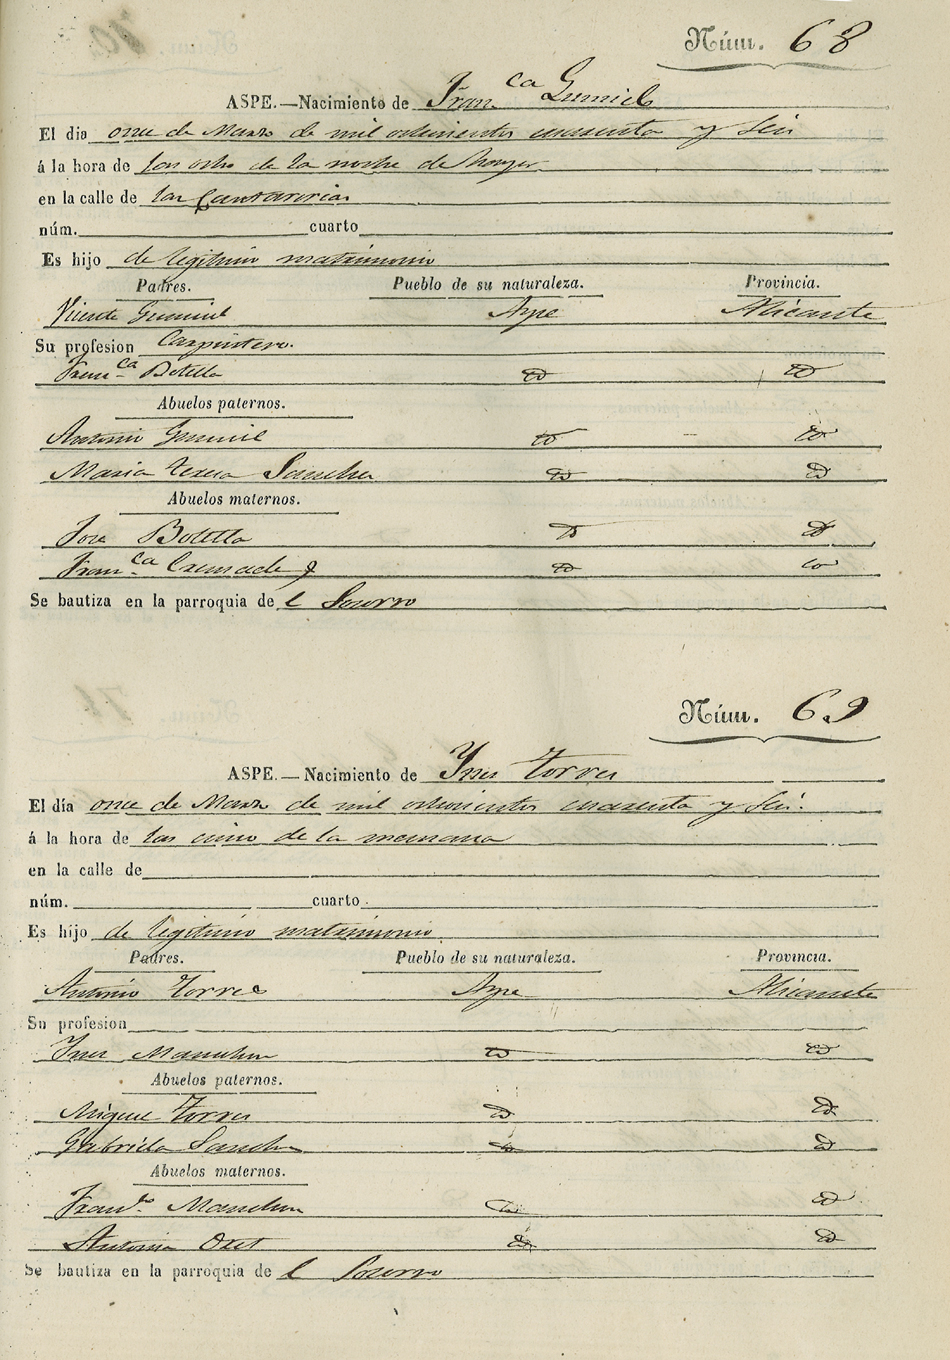 Núm. 68
ASPE.—Nacimiento de Fran.ca Gumiel
El dia once de Marzo de mil ochocientos cuarenta y seis
á la hora de las ocho de la noche de
en la calle de las Cantarerias
núm. cuarto
Es hijo de legitimo matrimonio
Padres. Pueblo de su naturaleza. Provincia.
Vicente Gumiel Aspe Alicante
Su profesion Carpintero.
Fran.ca Botella id id
Abuelos paternos.
Antonio Gumiel id id
Maria Teresa Sanchez id id
Abuelos maternos.
Jose Botella id id
Fran.ca Cremades id id
Se bautiza en la parroquia de l Socorro
Núm. 69
ASPE.—Nacimiento de Ynes Torres
El día once de Marzo de mil ochocientos cuarenta y seis.
á la hora de las cinco de la manana
en la calle de
núm. cuarto
Es hijo de legitimo matrimonio
Padres. Pueblo de su naturaleza. Provincia.
Antonio Torres Aspe Alicante
Su profesion
Ynes id id
Abuelos paternos.
Miguel Torres id id
Gabriela Sanchez id id
Abuelos maternos.
Fran.co id id
Antonia id id
Se bautiza en la parroquia de l Socorro